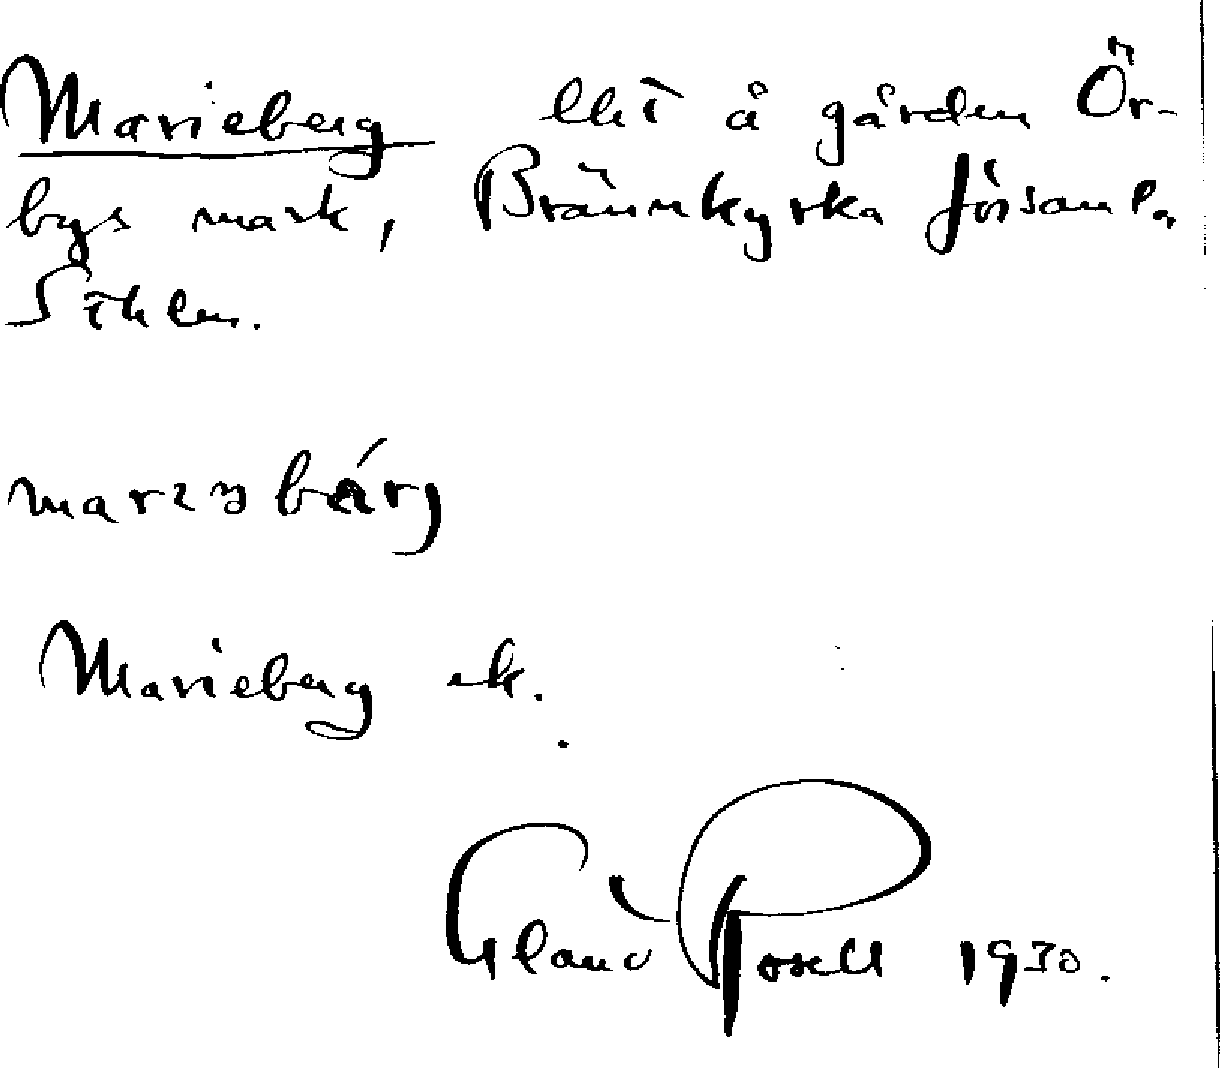 Marieberg lht å gården Ör-
bys mark, Brännkyrka församl.,
Sthlm.
marɩɜbärj
Marieberg ek.
Claud Rosell 1930.